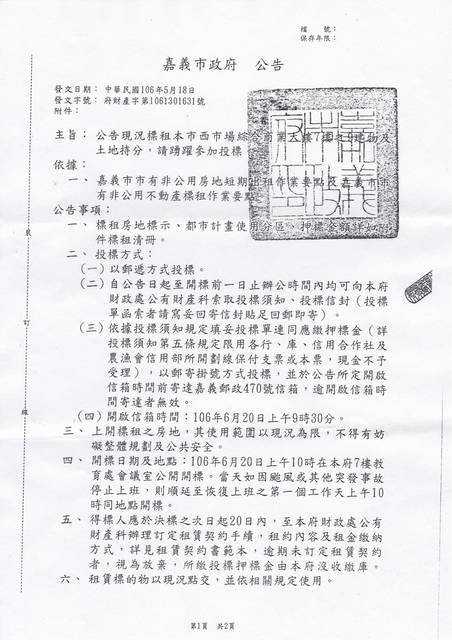 檔　　號：
保存年限：
嘉義市政府　公告
發文日期：中華民國106年5月18日
發文字號：府財產字第1061301631號
附件：
主旨：公告現況標租本市西市場綜合商業大樓7樓之9建物及
土地持分，請踴躍參加投標。
依據：
一、嘉義市市有非公用房地短期出租作業要點及嘉義市市
有非公用不動產標租作業要點。
公告事項：
一、標租房地標示、都市計畫使用分區、押標金額詳如附
件標租清冊。
二、投標方式：
(一)以郵遞方式投標。
(二)自公告日起至開標前一日止辦公時間內均可向本府
財政處公有財產科索取投標須知、投標信封（投標
單函索者請寫妥回寄信封貼足回郵即寄）。
(三)依據投標須知規定填妥投標單連同應繳押標金（詳
投標須知第五條規定限用各行、庫、信用合作社及
農漁會信用部所開劃線保付支票或本票，現金不予
受理），以郵寄掛號方式投標，並於公告所定開啟
信箱時間前寄達嘉義郵政470號信箱，逾開啟信箱時
間寄達者無效。
(四)開啟信箱時間：106年6月20日上午9時30分。
三、上開標租之房地，其使用範圍以現況為限，不得有妨
礙整體規劃及公共安全。
四、開標日期及地點：106年6月20日上午10時在本府7樓教
育處會議室公開開標。當天如因颱風或其他突發事故
停止上班，則順延至恢復上班之第一個工作天上午10
時同地點開標。
五、得標人應於決標之次日起20日內，至本府財政處公有
財產科辦理訂定租賃契約手續，租約內容及租金繳納
方式，詳見租賃契約書範本，逾期未訂定租賃契約
者，視為放棄，所繳投標押標金由本府沒收繳庫。
六、租賃標的物以現況點交，並依相關規定使用。
裝
訂
線
第1頁　共2頁